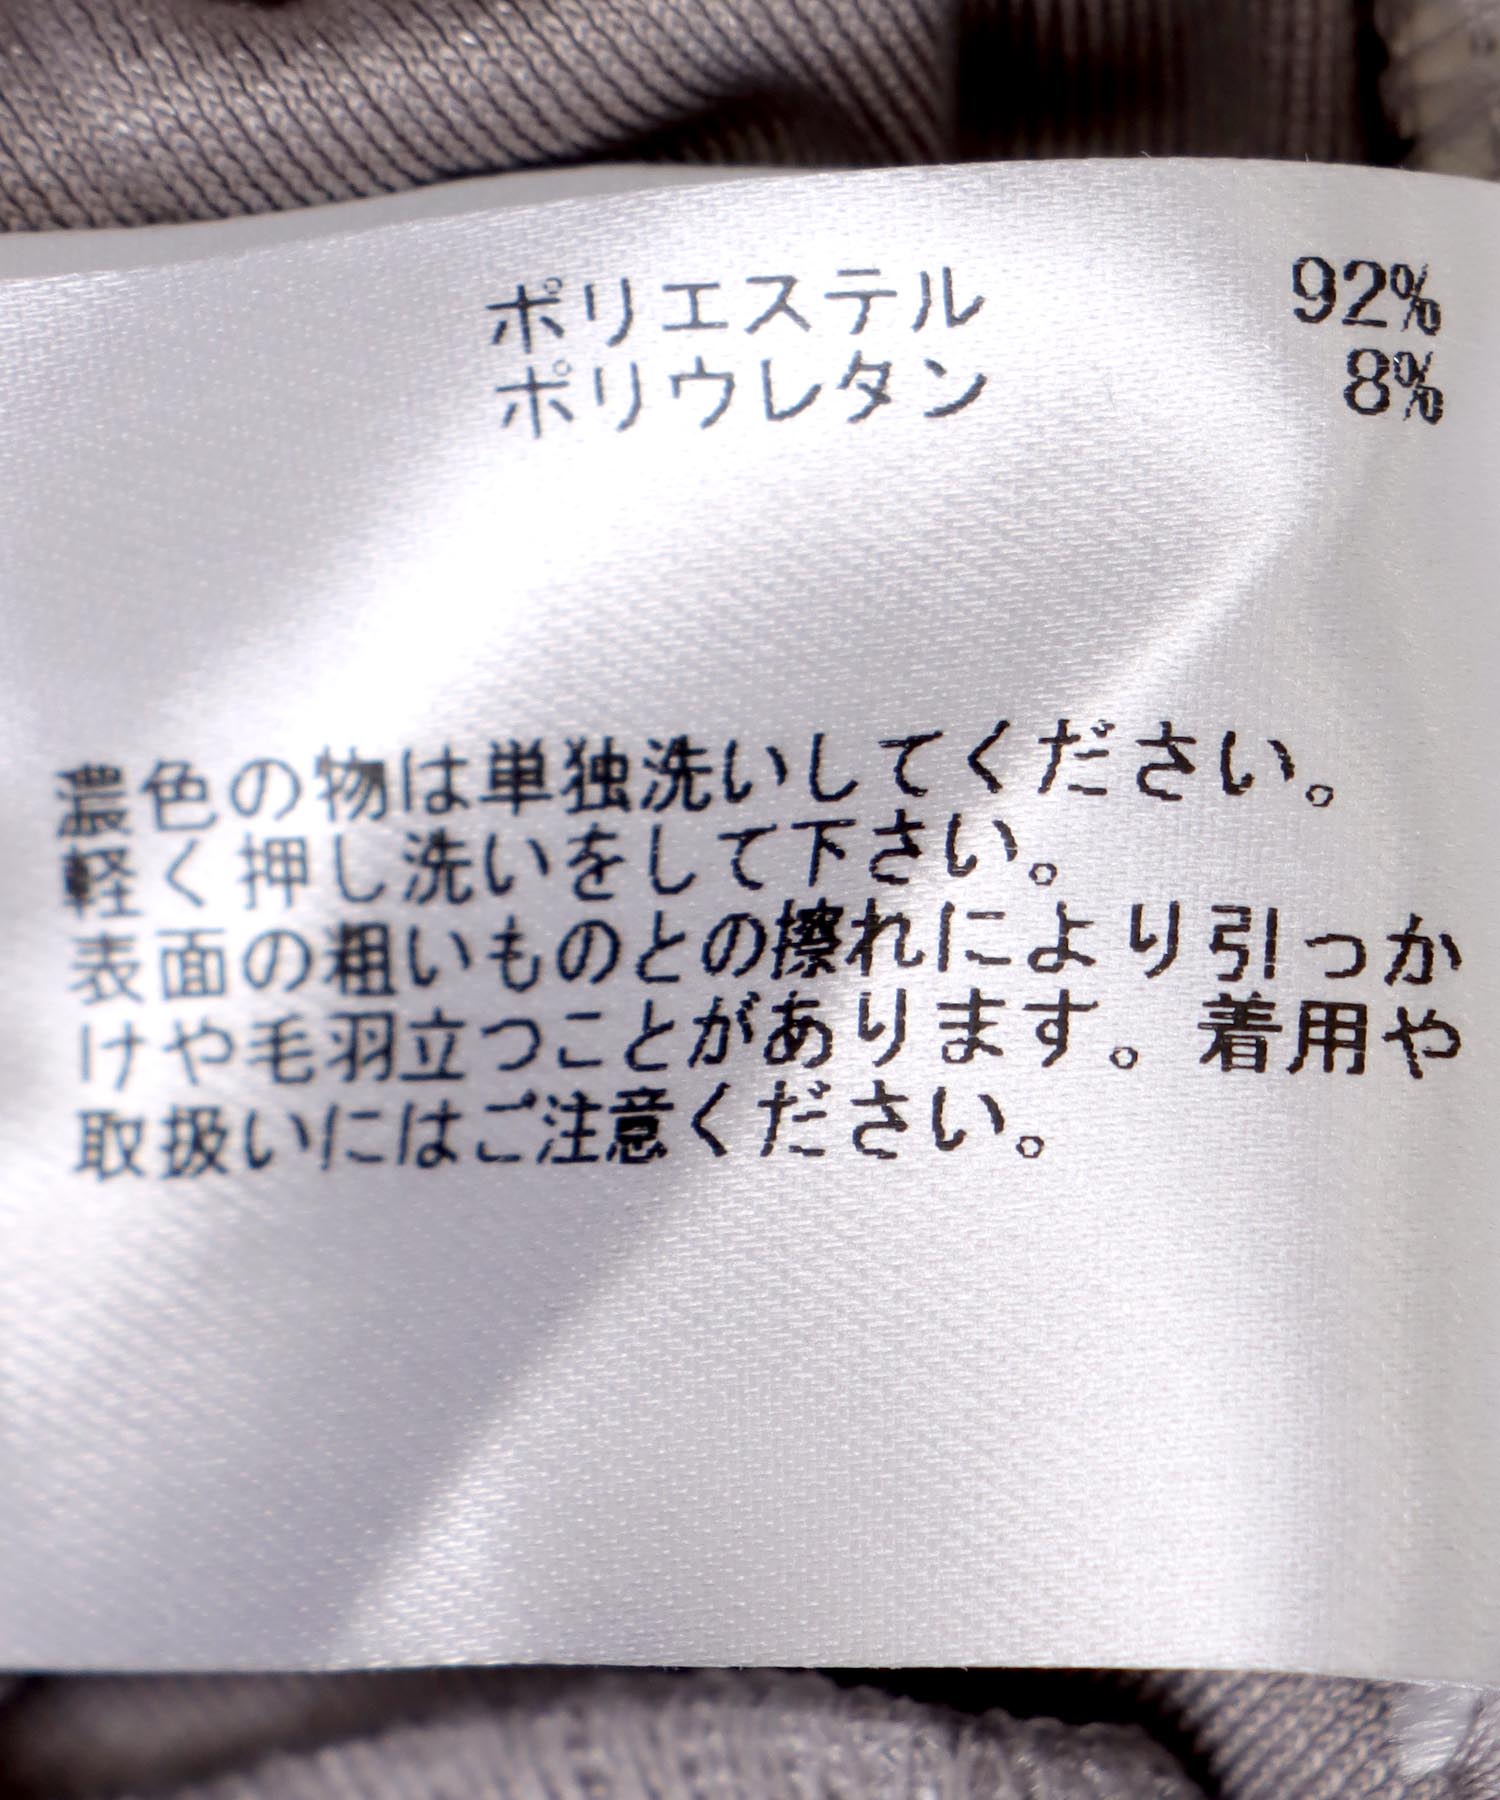 ポリエステル 92%
ポリウレタン 8%
濃色の物は単独洗いしてください。
軽く押し洗いをして下さい。
表面の粗いものとの擦れにより引っか
けや毛羽立つことがあります。着用や
取扱いにはご注意ください。